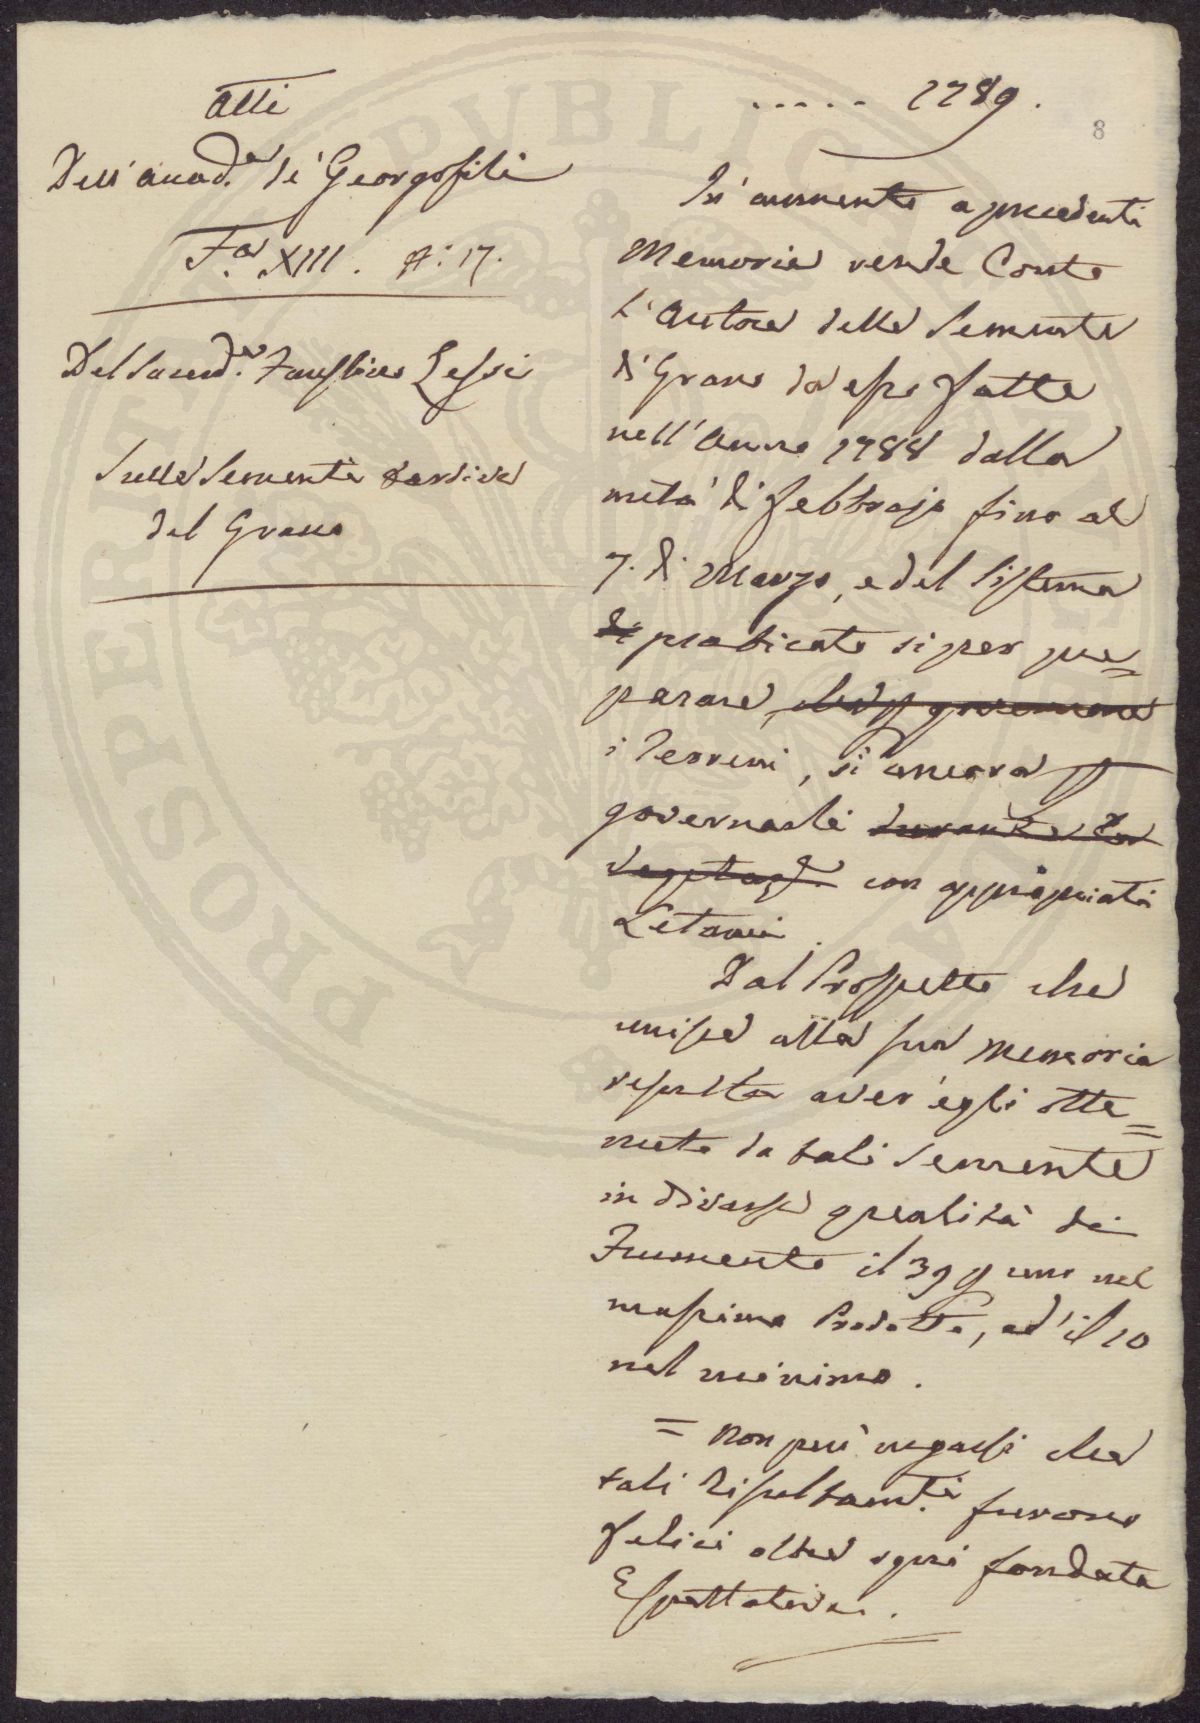 Atti
Dell'Accad.a de' Georgofili
F.a XIII. N.° 17.
Del Sacerd.e Faustino Lessi
Sulle Sementi tardive
del Grano
..... 1789.
8
In aumento a precedenti
Memorie rende Conto
l'Autore delle Semente
di Grano da esso fatte
nell'Anno 1788 dalla
metà di Febbrajo fino al
7. di Marzo, e del Sistema
di praticato si per pre=
parare, che p governare
i Terreni, si ancora p
governarli durante la
vegetaz.e con appropriati
Letami.
Dal Prospetto che
unisce alla sua Memoria
resulta aver egli otte=
nuto da tali Semente
in diverse qualità di
Frumento il 39 p uno nel
massimo Prodotto, ed il 10
nel minimo.
= Non può negarsi che
tali Risultam.ti furono
felici oltre ogni fondata
Espettativa.
PVBLICA
PROSPERITA